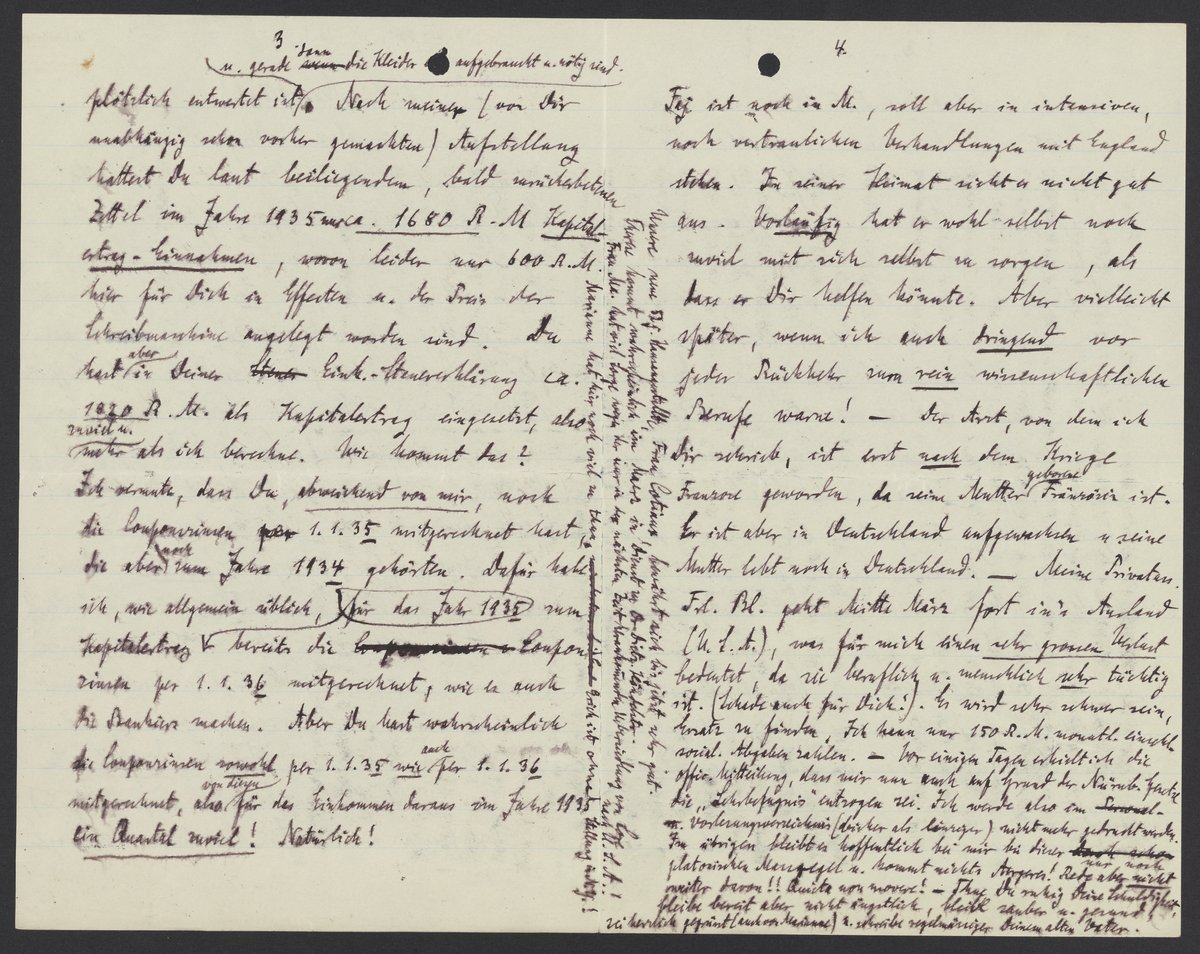 3
u. gerade dann die Kleider aufgebraucht u. nötig sind.
plötzlich entwertet ist. Nach meiner (von Dir
unabhängig schon vorher gemachten) Aufstellung
hattest Du laut beiliegendem, bald zurückerbetenen
Zettel im Jahre 1935 nur ca. 1680 R.-M Kapital
ertrag-Einnahmen, wovon leider nur 600 R.M.
hier für Dich in Effecten u. der Preis der
Schreibmaschine angelegt worden sind. Du
hast aber in Deiner Steuer Eink.-Steuererklärung ca.
R.M. als Kapitalertrag eingesetzt, also
zuviel u.
mehr als ich berechne. Wie kommt das?
Ich vermute, dass Du, abweichend von mir, noch
die Couponzinsen per 1.1.35 mitgerechnet hast,
die aber noch zum Jahre 1934 gehörten. Dafür habe
ich, wie allgemein üblich, für das Jahr 1935 zum
Kapitalertrag bereits die Coupon
zinsen per 1.1.36 mitgerechnet, wie es auch
die Bankiers machen. Aber Du hast wahrscheinlich
die Couponzinsen sowohl per 1.1.35 wie auch per 1.1.36
mitgerechnet, also für das Einkommen daraus im Jahre 1935
ein Quartal zuviel! Natürlich!
Unsere neue Hausangestellte, Frau bewährt sich bis jetzt sehr gut.
kommt wahrscheinlich im März in Dienst
Frau Ma. hat viel Sorge wegen ihr in der nächsten Zeit bevorstehenden Übersiedlung von nach U.S.A.!
Marianne hat hier noch viel zu tun,
4.
ist noch in M., soll aber in intensiven,
noch vertraulichen Verhandlungen mit England
stehen. In seiner Heimat sieht es nicht gut
aus. Vorläufig hat er wohl selbst noch
zuviel mit sich selbst zu sorgen, als
dass er Dir helfen könnte. Aber vielleicht
später, wenn ich auch dringend vor
jeder Rückkehr zum rein wissenschaftlichen
Berufe warne! — Der Arzt, von dem ich
Dir schrieb, ist erst nach dem Kriege
Franzose geworden, da seine Mutter geborene Französin ist.
Er ist aber in Deutschland aufgewachsen u seine
Mutter lebt noch in Deutschland. — Meine Privatass.
Frl. Bl. geht Mitte März fort in's Ausland
(U.S.A.), was für mich einen sehr grossen Verlust
bedeutet, da sie beruflich u. menschlich sehr tüchtig
ist. (Schade auch für Dich!). Es wird sehr schwer sein,
Ersatz zu finden, Ich kann nur 150 R.M. monatl. einschl.
social. Abgaben zahlen. — Vor einigen Tagen erhielt ich die
offic. Mitteilung, dass mir nun auch auf Grund der Nürnb. Gesetze
die „Lehrbefugnis" entzogen sei. Ich werde also im Personal-
u. Vorlesungsverzeichnis (bisher als Einziger) nicht mehr gedruckt werden.
Im übrigen bleibt es hoffentlich bei mir bei dieser nur noch
platonischen Massregel u. kommt nichts Aergeres! Rede aber nicht
weiter davon!! Quieta non movere! — Thue Du ruhig Deine Schuldigkeit,
bleibe bereit aber nicht ängstlich, bleibe sauber u. gesund!
sei herzlich gegrüsst (auch von Marianne) u. schreibe regelmässiger Deinem alten Vater.